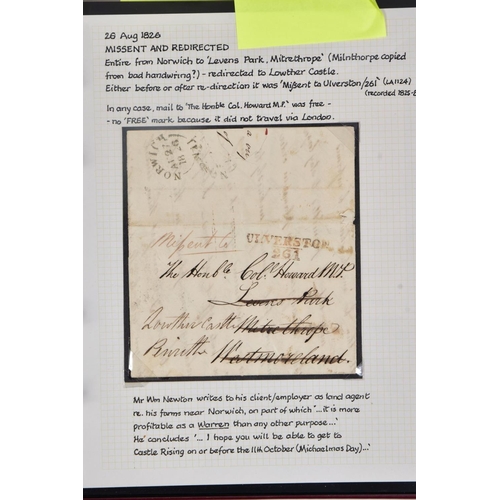 26 Aug 1826
MISSENT AND REDIRECTED
Entire from Norwich to 'Levens Park, Mitrethrope' (Milnthorpe copied
from bad handwring?) - redirected to Lowther Castle.
Either before or after re-direction it was 'Mißent to Ulverston/261' (LA1124)
(recorded 1825-8
In any case, mail to 'The Honble Col. Howard M.P.' was free -
- no 'FREE' mark because it did not travel via London.
NORWICH
Mißent to
ULVERSTON
261
The Honble Col. Howard M.P.
Levens Park
Lowther Castle Mitrethrope
Penrith Westmoreland.
Mr Wm Newton writes to his client/employer as land agent
re. his farms near Norwich, on part of which '...it is more
profitable as a Warren than any other purpose...'
He concludes '... I hope you will be able to get to
Castle Rising on or before the 11th October (Michaelmas Day)...'